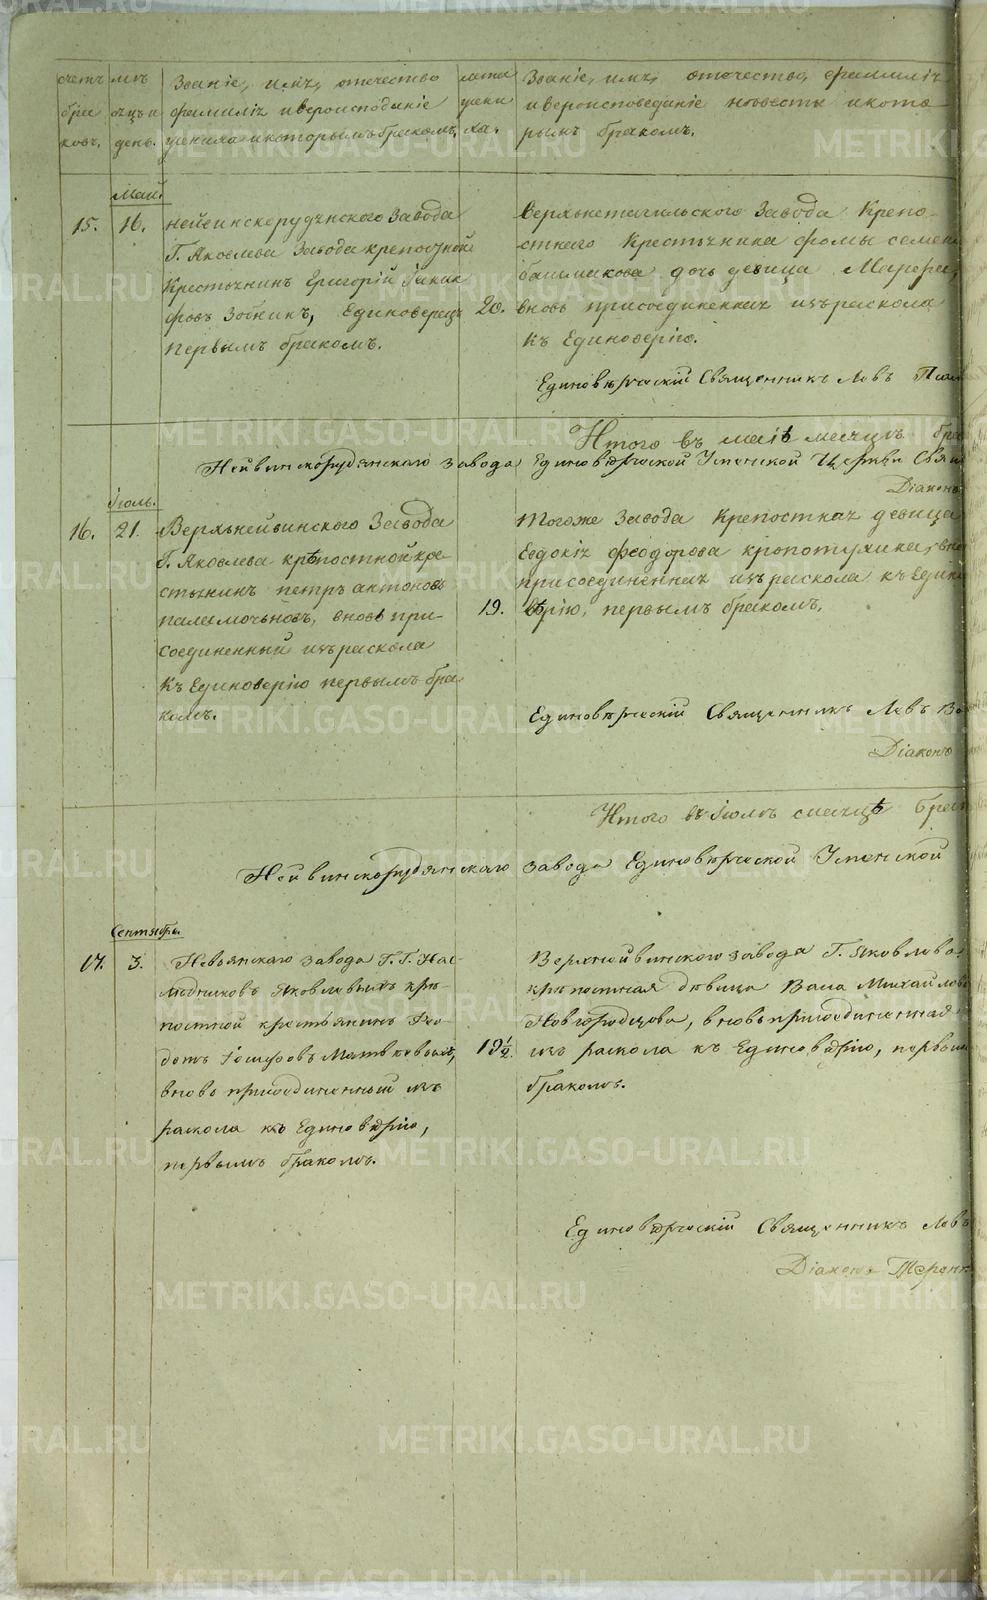 счетъ бра ковъ.
мѣ сѣцъ и день.
Званіе, имѣ, отечество
фамиліѣ и вероисподаніе
жениха и которымъ бракомъ.
лѣта жени ха.
Званіе, имѣ, отечество, фамиліѣ
и вероисповеданіе невесты и кото
рымъ бракомъ.
Май.
15. 16.
нейвинскорудѣнского Завода
Г. Яковлева Завода крепостной
Крестьѣнинъ Григорій
Зобнинъ, Единоверецъ
первымъ бракомъ.
20.
Верхънетагильского Завода Крепо-
стнаго Крестьѣнина фомы семен
башмакова дочь девица
вновь присоединеннаѣ изъ раскола
къ Единоверію.
Единовѣрческій Священникъ Левъ
Итого въ маіѣ месѣцѣ бра
Нейвинскорудянскаго завода Единовѣрческой Успенской Церкви Свящ
Діаконъ
Іюль.
16. 21.
Верхънейвинского Завода
Г. Яковлева крѣпостной кре-
стьѣнинъ петръ антоновъ
вновь при-
соединенный изъ раскола
къ Единоверію первымъ бра-
комъ.
19.
Тогоже Завода Крепостнаѣ девица
Евдокіѣ феодорова
присоединеннаѣ изъ раскола къ Едино
вѣрію, первымъ бракомъ.
Единовѣрческій Священникъ Левъ
Діаконъ
Итого въ Іюлѣ месѣцѣ брак
Нейвинскорудянскаго завода Единовѣрческой Успенской
Сентябрь.
17. 3.
Невьянскаго завода Г.Г. Нас-
лѣдниковъ Яковлевыхъ крѣ-
постной крестьянинъ Фео-
дотъ Іосифовъ Матвѣевыхъ,
вновь присоединенный изъ
раскола къ Единовѣрію,
первымъ бракомъ.
19½.
Верхнейвинского завода Г. Яковлева
крѣпостная дѣвица Васа Михайлова
Новгородцова, вновь присоединенная
изъ раскола къ Единовѣрію, первымъ
бракомъ.
Единовѣрческій Священникъ Левъ
Діаконъ
METRIKI.GASO-URAL.RU